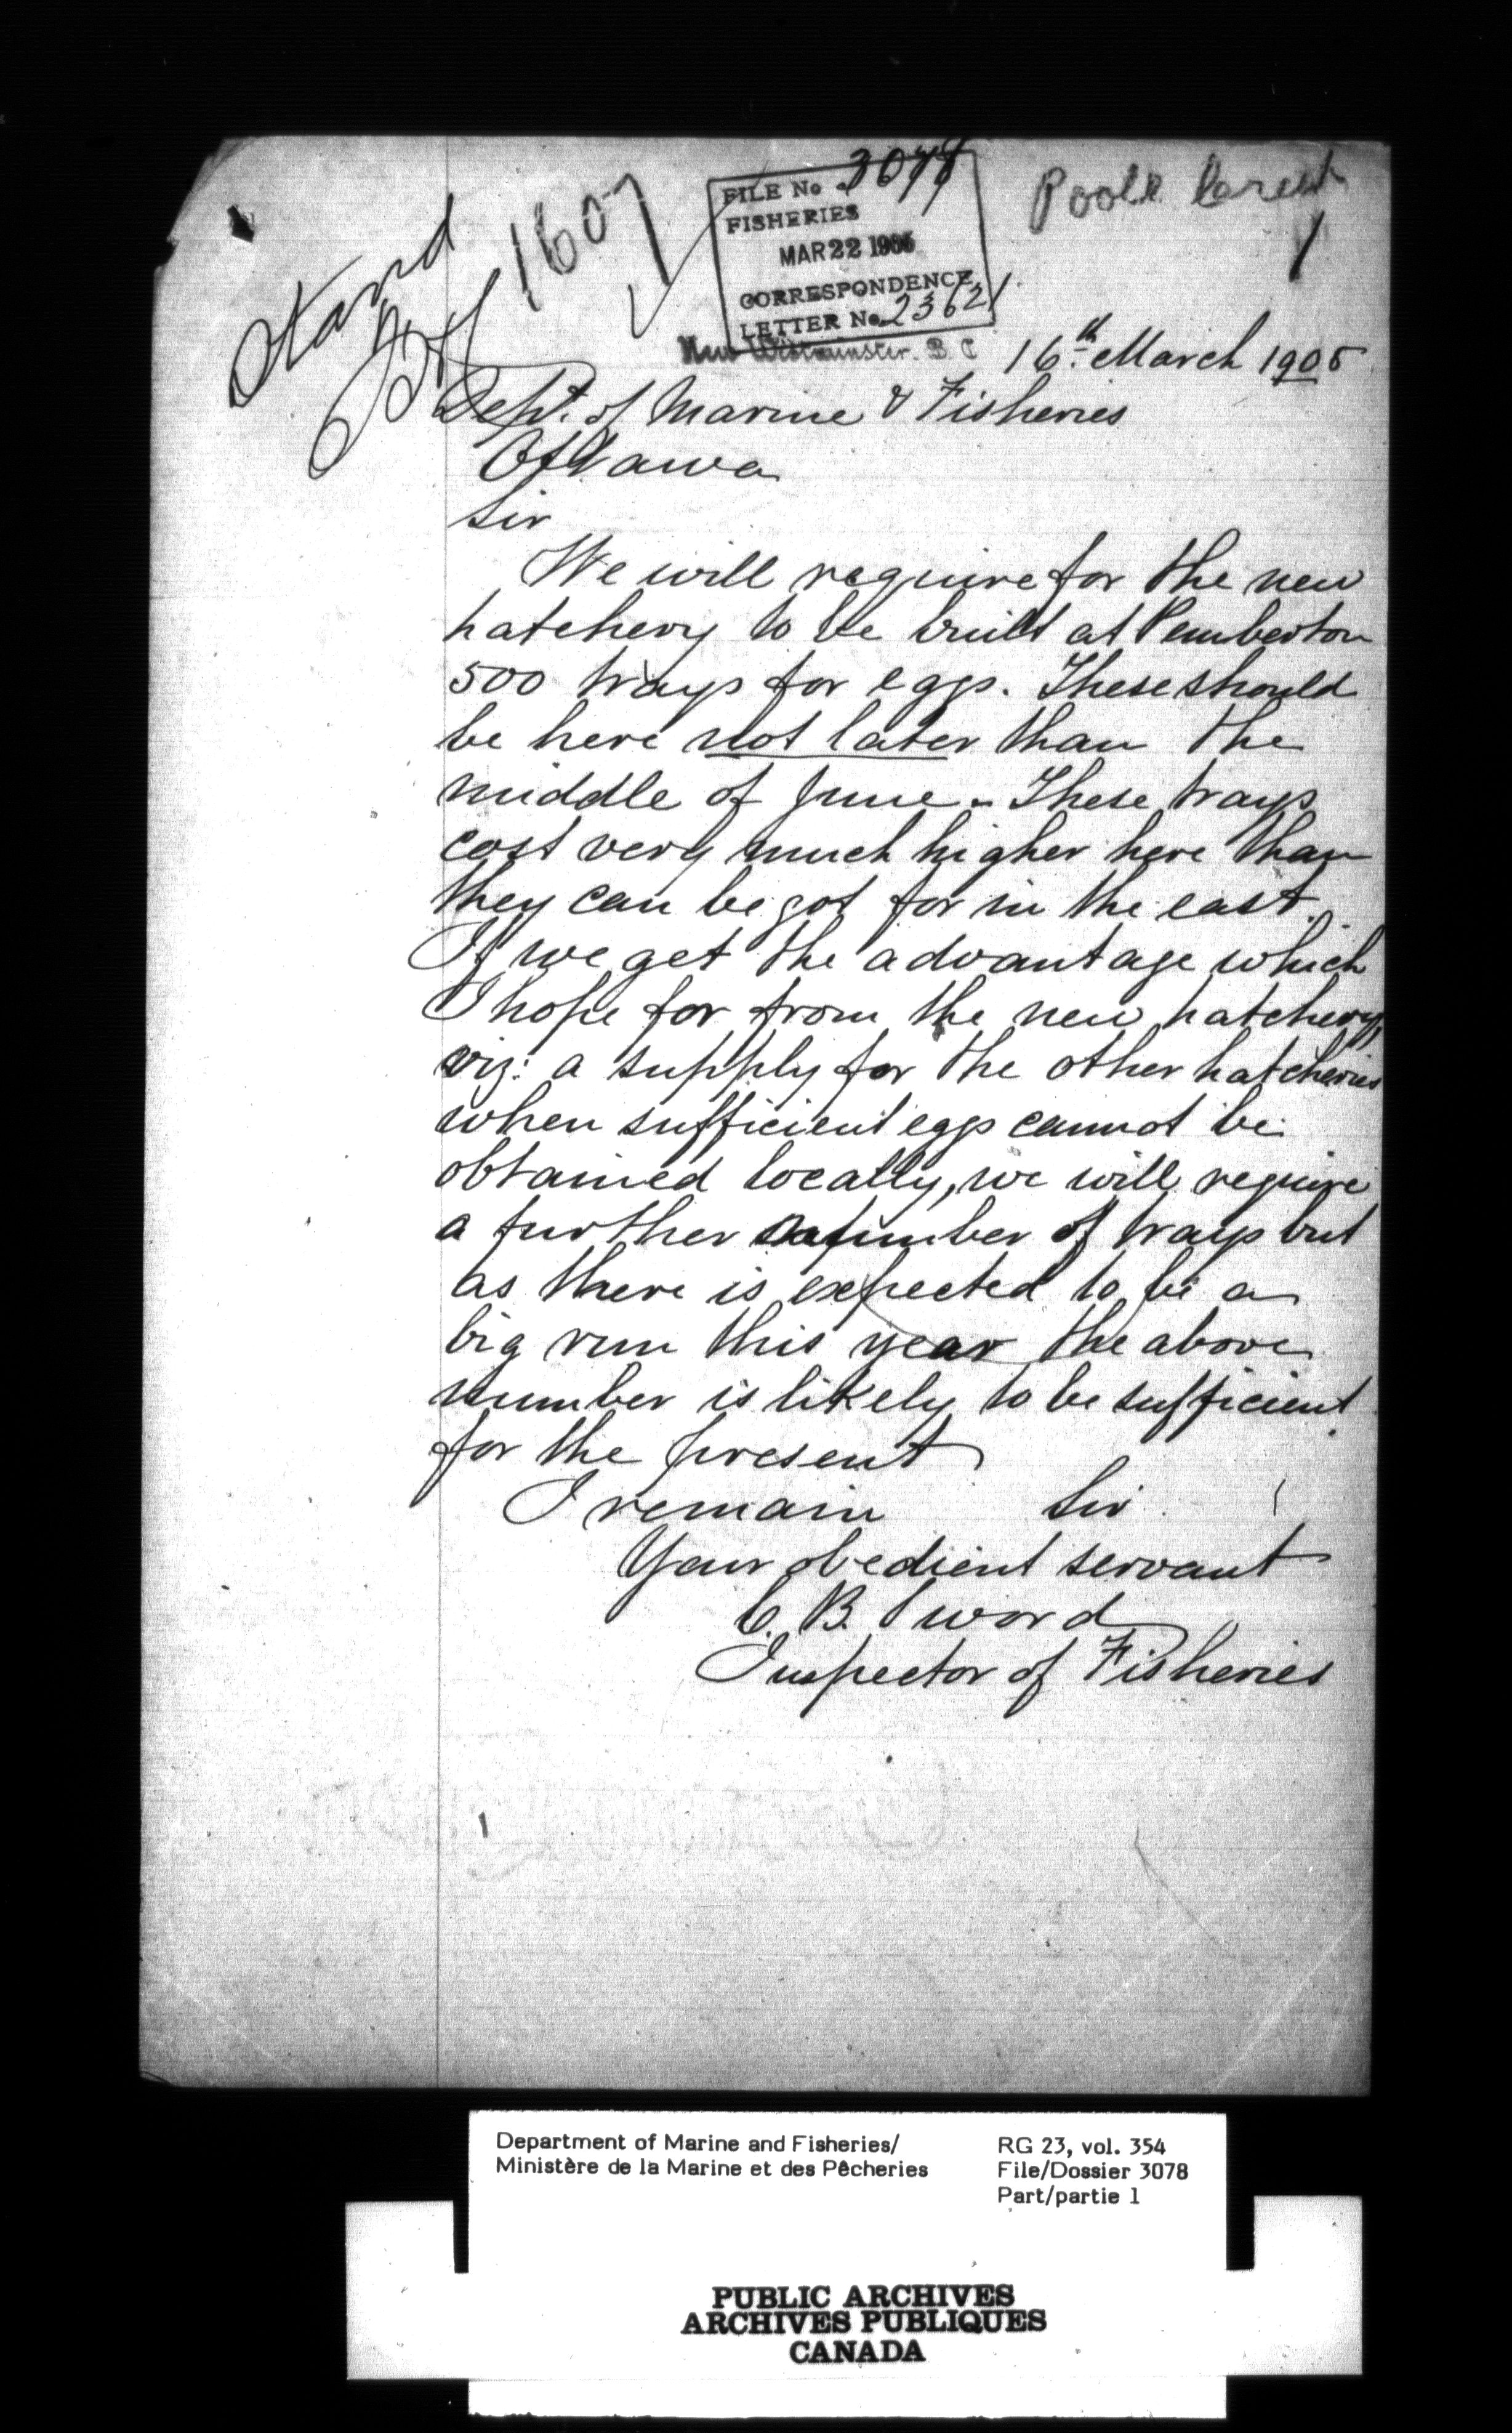 Stand
1607
FILE No. 3078
FISHERIES
MAR 22 1905
CORRESPONDENCE
LETTER No. 23621
Poole Creek
1
New Westminster. B. C 16th March 1905
Dept. of Marine & Fisheries
Ottawa
Sir
We will require for the new
hatchery to be built at Pemberton
500 trays for eggs. These should
be here not later than the
middle of June. These trays
cost very much higher here than
they can be got for in the east.
If we get the advantage which
I hope for from the new hatchery,
viz: a supply for the other hatcheries
when sufficient eggs cannot be
obtained locally, we will require
a further number of trays but
as there is expected to be a
big run this year the above
number is likely to be sufficient
for the present
I remain Sir
Your obedient servant
C. B. Sword
Inspector of Fisheries
Department of Marine and Fisheries/
Ministère de la Marine et des Pêcheries
RG 23, vol. 354
File/Dossier 3078
Part/partie 1
PUBLIC ARCHIVES
ARCHIVES PUBLIQUES
CANADA